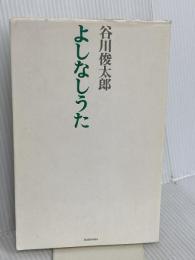 谷川俊太郎
よしなしうた